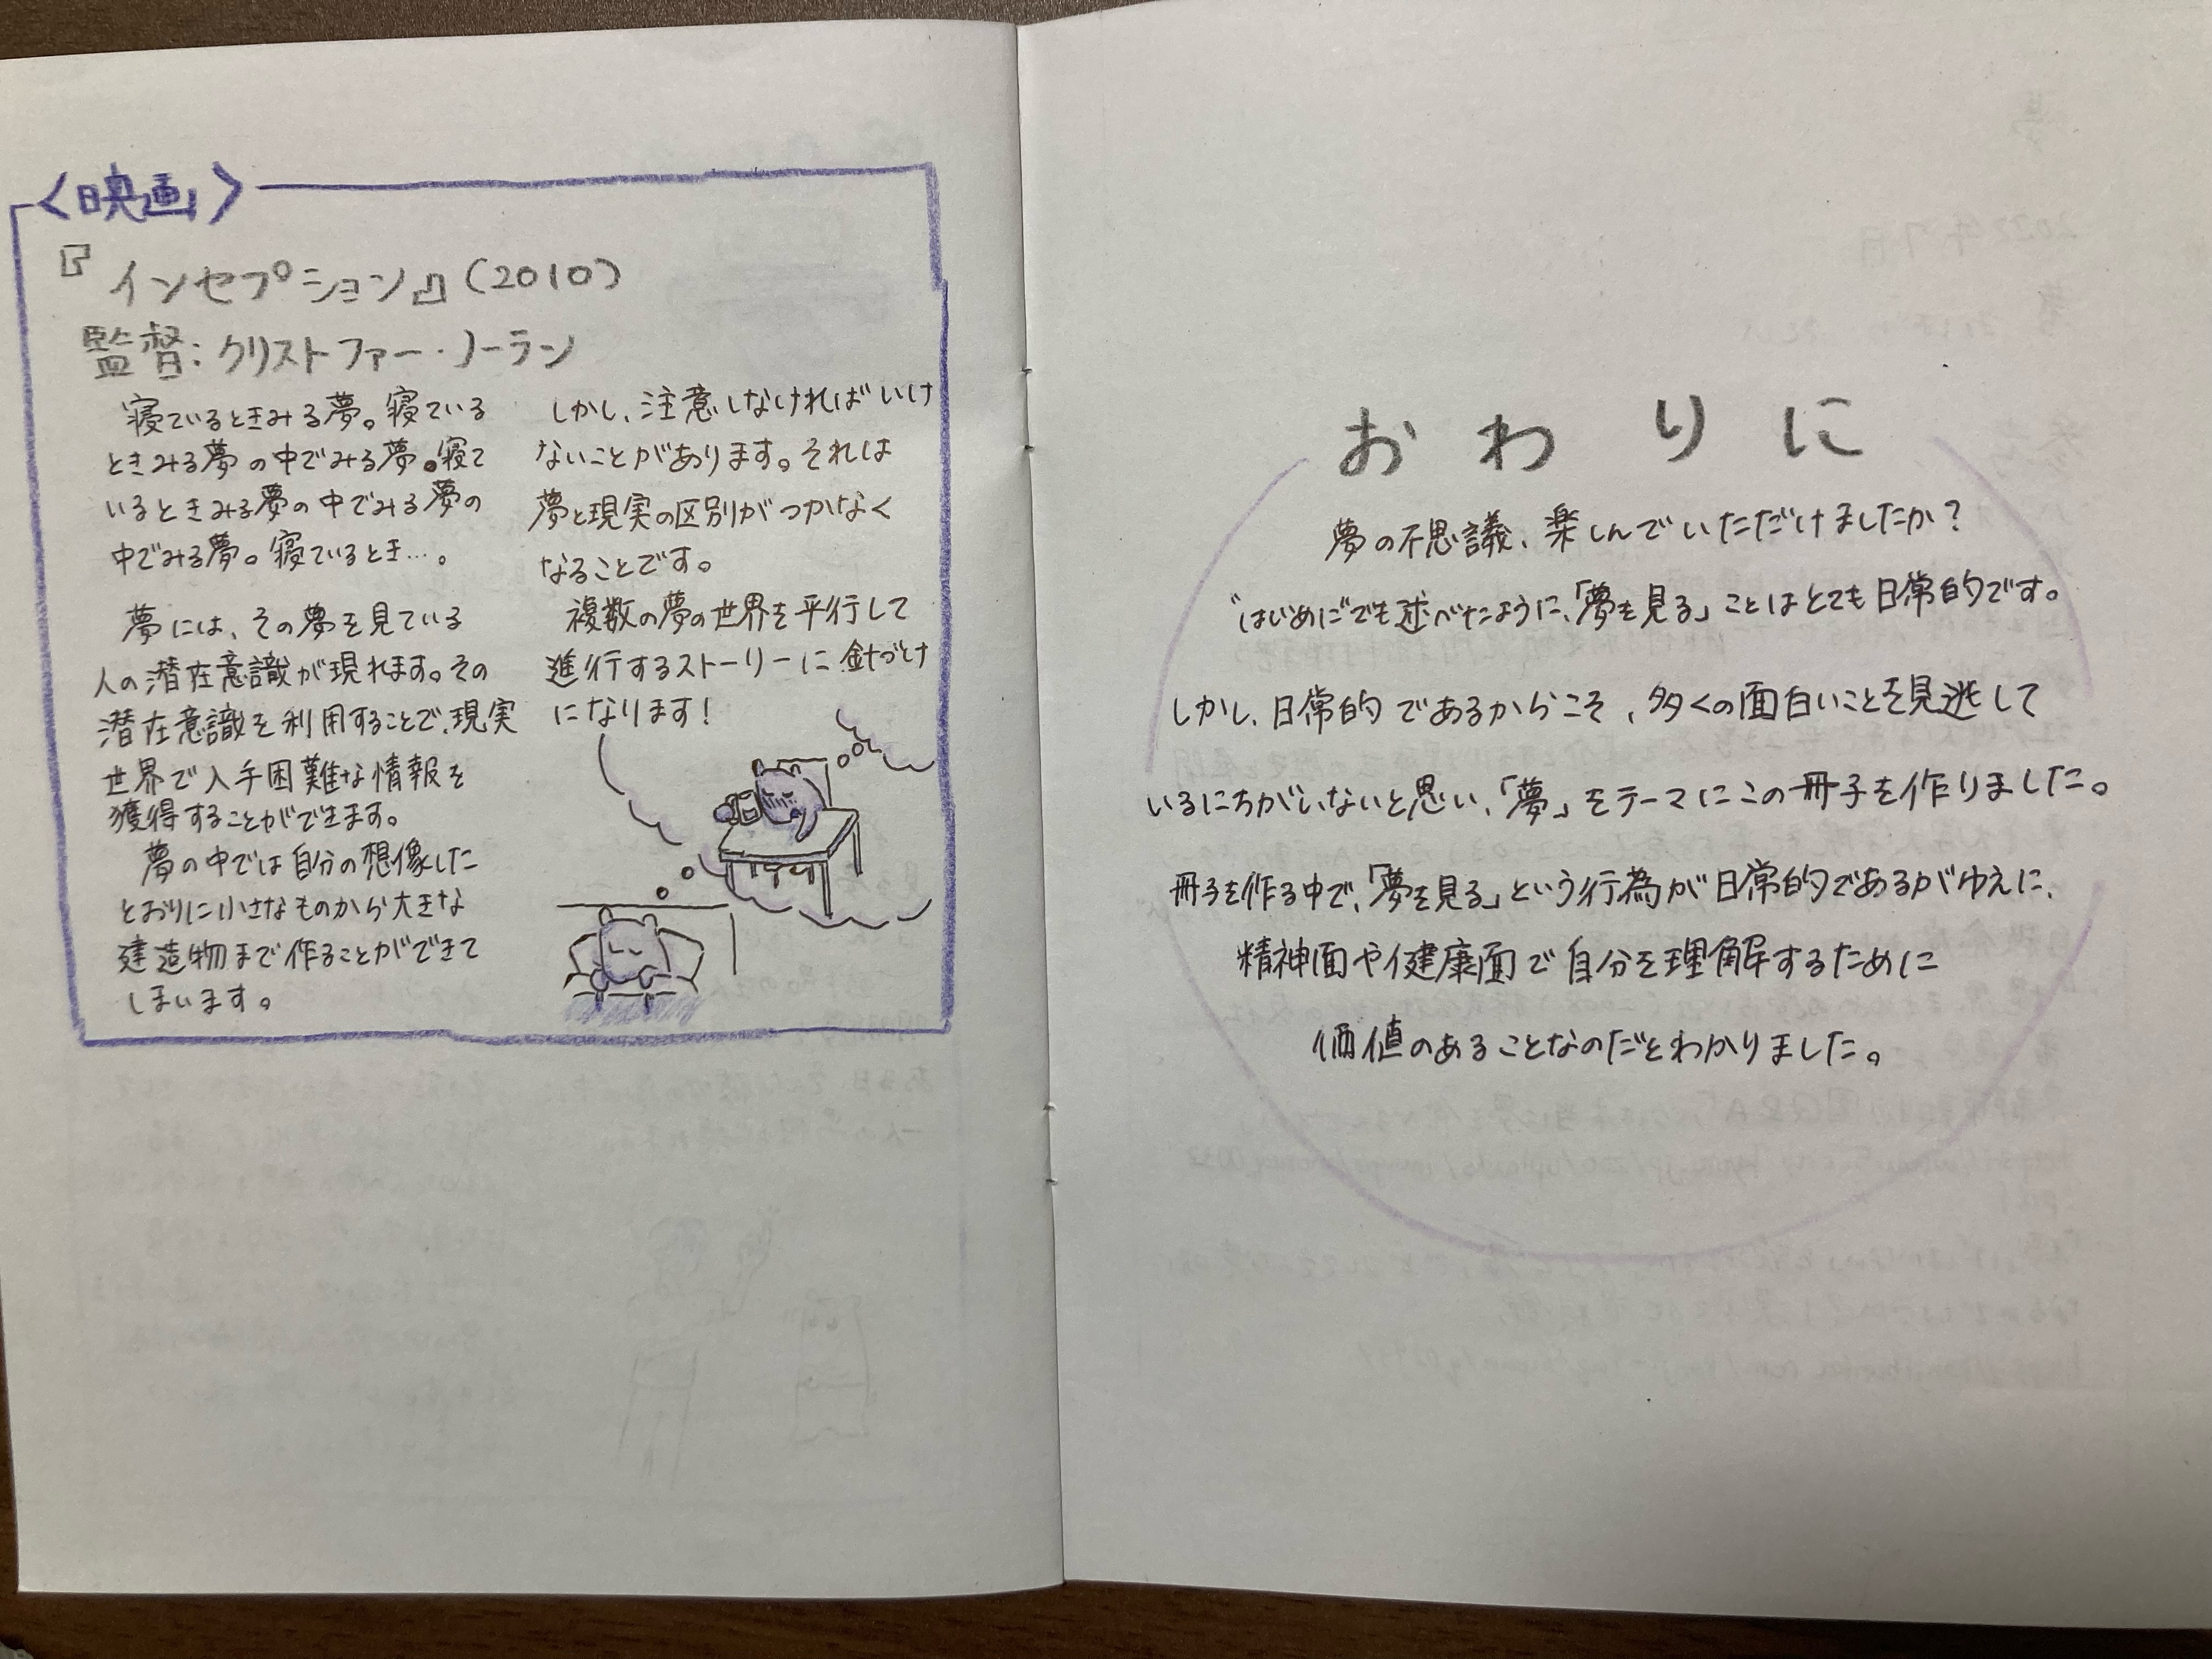 〈映画〉
『インセプション』(2010)
監督:クリストファー・ノーラン
寝ているときみる夢。寝ている
ときみる夢の中でみる夢。寝て
いるときみる夢の中でみる夢の
中でみる夢。寝ているとき…。
夢には、その夢を見ている
人の潜在意識が現れます。その
潜在意識を利用することで、現実
世界で入手困難な情報を
獲得することができます。
夢の中では自分の想像した
とおりに小さなものから大きな
建造物まで作ることができて
しまいます。
しかし、注意しなければいけ
ないことがあります。それは
夢と現実の区別がつかなく
なることです。
複数の夢の世界を平行して
進行するストーリーに釘づけ
になります!
おわりに
夢の不思議、楽しんでいただけましたか?
"はじめに"でも述べたように、「夢を見る」ことはとても日常的です。
しかし、日常的であるからこそ、多くの面白いことを見逃して
いるにちがいないと思い、「夢」をテーマにこの冊子を作りました。
冊子を作る中で、「夢を見る」という行為が日常的であるがゆえに、
精神面や健康面で自分を理解するために
価値のあることなのだとわかりました。